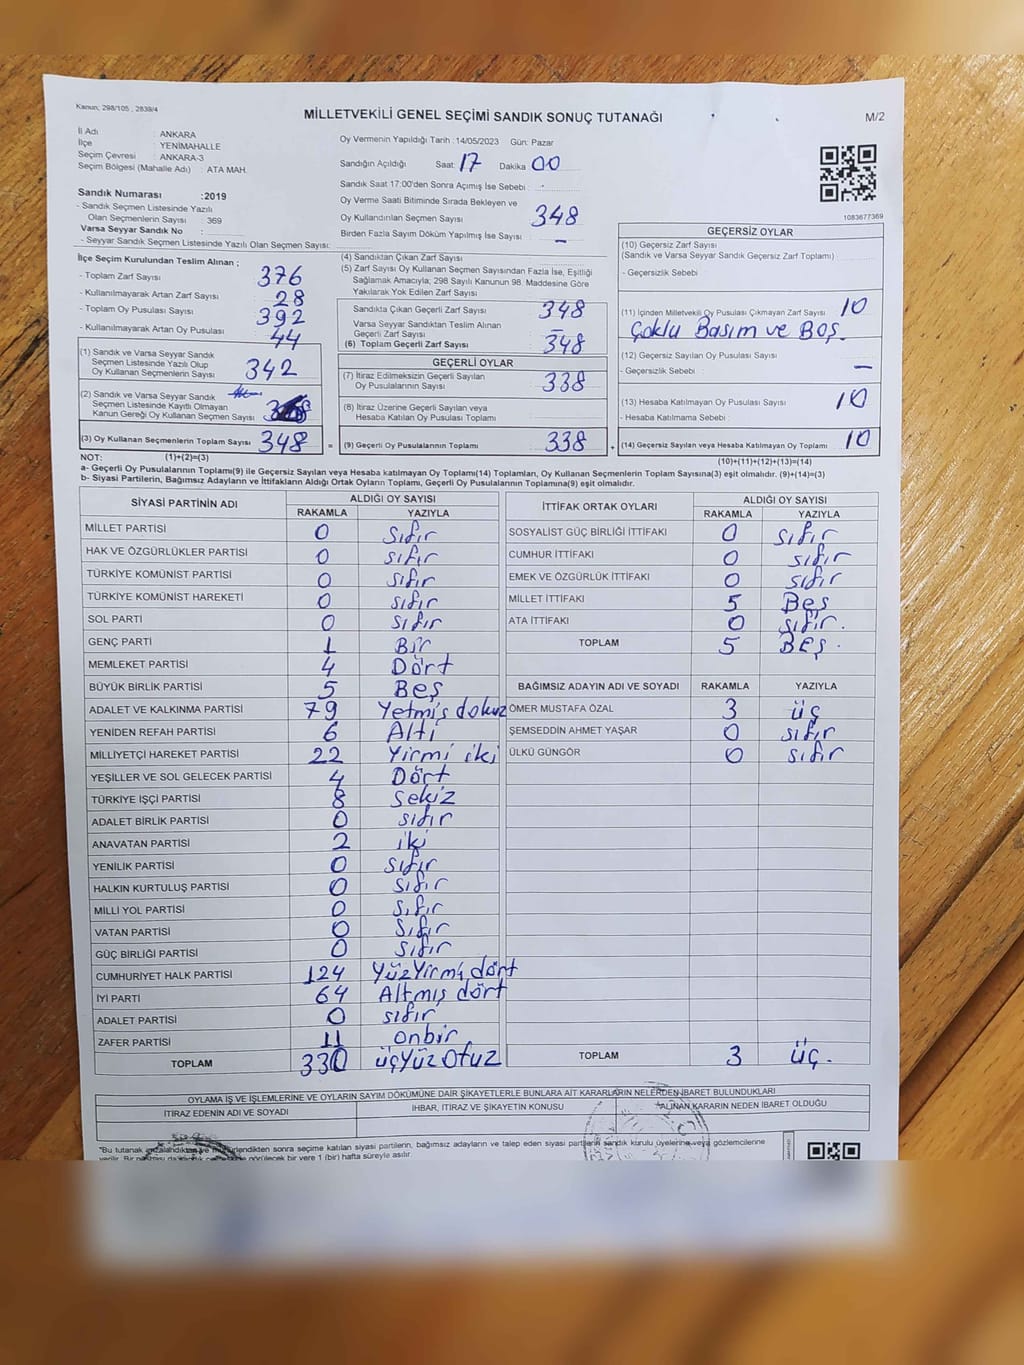 Kanun; 298/105 , 2839/4
MİLLETVEKİLİ GENEL SEÇİMİ SANDIK SONUÇ TUTANAĞI
M/2
İl Adı : ANKARA
İlçe : YENİMAHALLE
Seçim Çevresi : ANKARA-3
Seçim Bölgesi (Mahalle Adı) : ATA MAH.
Sandık Numarası :2019
- Sandık Seçmen Listesinde Yazılı
Olan Seçmenlerin Sayısı : 369
Varsa Seyyar Sandık No :
- Seyyar Sandık Seçmen Listesinde Yazılı Olan Seçmen Sayısı:
Oy Vermenin Yapıldığı Tarih : 14/05/2023 Gün: Pazar
Sandığın Açıldığı Saat: 17 Dakika 00
Sandık Saat 17:00'den Sonra Açımış İse Sebebi :
Oy Verme Saati Bitiminde Sırada Bekleyen ve
Oy Kullandırılan Seçmen Sayısı 348
Birden Fazla Sayım Döküm Yapılmış İse Sayısı : -
1083677369
İlçe Seçim Kurulundan Teslim Alınan ;
- Toplam Zarf Sayısı 376
- Kullanılmayarak Artan Zarf Sayısı 28
- Toplam Oy Pusulası Sayısı 392
- Kullanılmayarak Artan Oy Pusulası 44
(1) Sandık ve Varsa Seyyar Sandık
Seçmen Listesinde Yazılı Olup
Oy Kullanan Seçmenlerin Sayısı 342
(2) Sandık ve Varsa Seyyar Sandık
Seçmen Listesinde Kayıtlı Olmayan
Kanun Gereği Oy Kullanan Seçmen Sayısı
(3) Oy Kullanan Seçmenlerin Toplam Sayısı 348
(4) Sandıktan Çıkan Zarf Sayısı
(5) Zarf Sayısı Oy Kullanan Seçmen Sayısından Fazla İse, Eşitliği
Sağlamak Amacıyla; 298 Sayılı Kanunun 98. Maddesine Göre
Yakılarak Yok Edilen Zarf Sayısı
Sandıkta Çıkan Geçerli Zarf Sayısı 348
Varsa Seyyar Sandıktan Teslim Alınan
Geçerli Zarf Sayısı -
(6) Toplam Geçerli Zarf Sayısı 348
GEÇERLİ OYLAR
(7) İtiraz Edilmeksizin Geçerli Sayılan
Oy Pusulalarının Sayısı 338
(8) İtiraz Üzerine Geçerli Sayılan veya
Hesaba Katılan Oy Pusulası Toplamı
= (9) Geçerli Oy Pusulalarının Toplamı 338 +
GEÇERSİZ OYLAR
(10) Geçersiz Zarf Sayısı
(Sandık ve Varsa Seyyar Sandık Geçersiz Zarf Toplamı)
- Geçersizlik Sebebi :
(11) İçinden Milletvekili Oy Pusulası Çıkmayan Zarf Sayısı 10
Çoklu Basım ve Boş.
(12) Geçersiz Sayılan Oy Pusulası Sayısı
- Geçersizlik Sebebi : -
(13) Hesaba Katılmayan Oy Pusulası Sayısı 10
- Hesaba Katılmama Sebebi :
(14) Geçersiz Sayılan veya Hesaba Katılmayan Oy Toplamı 10
NOT: (1)+(2)=(3)
(10)+(11)+(12)+(13)=(14)
a- Geçerli Oy Pusulalarının Toplamı(9) ile Geçersiz Sayılan veya Hesaba katılmayan Oy Toplamı(14) Toplamları, Oy Kullanan Seçmenlerin Toplam Sayısına(3) eşit olmalıdır. (9)+(14)=(3)
b- Siyasi Partilerin, Bağımsız Adayların ve İttifakların Aldığı Ortak Oyların Toplamı, Geçerli Oy Pusulalarının Toplamına(9) eşit olmalıdır.
SİYASİ PARTİNİN ADI ALDIĞI OY SAYISI
RAKAMLA YAZIYLA
MİLLET PARTİSİ 0 sıfır
HAK VE ÖZGÜRLÜKLER PARTİSİ 0 sıfır
TÜRKİYE KOMÜNİST PARTİSİ 0 sıfır
TÜRKİYE KOMÜNİST HAREKETİ 0 sıfır
SOL PARTİ 0 sıfır
GENÇ PARTİ 1 Bir
MEMLEKET PARTİSİ 4 Dört
BÜYÜK BİRLİK PARTİSİ 5 Beş
ADALET VE KALKINMA PARTİSİ 79 Yetmiş dokuz
YENİDEN REFAH PARTİSİ 6 Altı
MİLLİYETÇİ HAREKET PARTİSİ 22 Yirmi iki
YEŞİLLER VE SOL GELECEK PARTİSİ 4 Dört
TÜRKİYE İŞÇİ PARTİSİ 8 sekiz
ADALET BİRLİK PARTİSİ 0 sıfır
ANAVATAN PARTİSİ 2 iki
YENİLİK PARTİSİ 0 sıfır
HALKIN KURTULUŞ PARTİSİ 0 sıfır
MİLLİ YOL PARTİSİ 0 sıfır
VATAN PARTİSİ 0 sıfır
GÜÇ BİRLİĞİ PARTİSİ 0 sıfır
CUMHURİYET HALK PARTİSİ 124 Yüz Yirmi dört
İYİ PARTİ 64 Altmış dört
ADALET PARTİSİ 0 sıfır
ZAFER PARTİSİ 11 onbir
TOPLAM 330 üçYüz Otuz
İTTİFAK ORTAK OYLARI ALDIĞI OY SAYISI
RAKAMLA YAZIYLA
SOSYALİST GÜÇ BİRLİĞİ İTTİFAKI 0 sıfır
CUMHUR İTTİFAKI 0 sıfır
EMEK VE ÖZGÜRLÜK İTTİFAKI 0 sıfır
MİLLET İTTİFAKI 5 Beş
ATA İTTİFAKI 0 sıfır.
TOPLAM 5 Beş.
BAĞIMSIZ ADAYIN ADI VE SOYADI RAKAMLA YAZIYLA
ÖMER MUSTAFA ÖZAL 3 üç
ŞEMSEDDİN AHMET YAŞAR 0 sıfır
ÜLKÜ GÜNGÖR 0 sıfır
TOPLAM 3 üç.
OYLAMA İŞ VE İŞLEMLERİNE VE OYLARIN SAYIM DÖKÜMÜNE DAİR ŞİKAYETLERLE BUNLARA AİT KARARLARIN NELERDEN İBARET BULUNDUKLARI
İTİRAZ EDENİN ADI VE SOYADI İHBAR, İTİRAZ VE ŞİKAYETİN KONUSU ALINAN KARARIN NEDEN İBARET OLDUĞU
"Bu tutanak imzalandıktan ve mühürlendikten sonra seçime katılan siyasi partilerin, bağımsız adayların ve talep eden siyasi partilerin sandık kurulu üyelerine veya gözlemcilerine
verilir. Bir görülecek bir yere 1 (bir) hafta süreyle asılır.